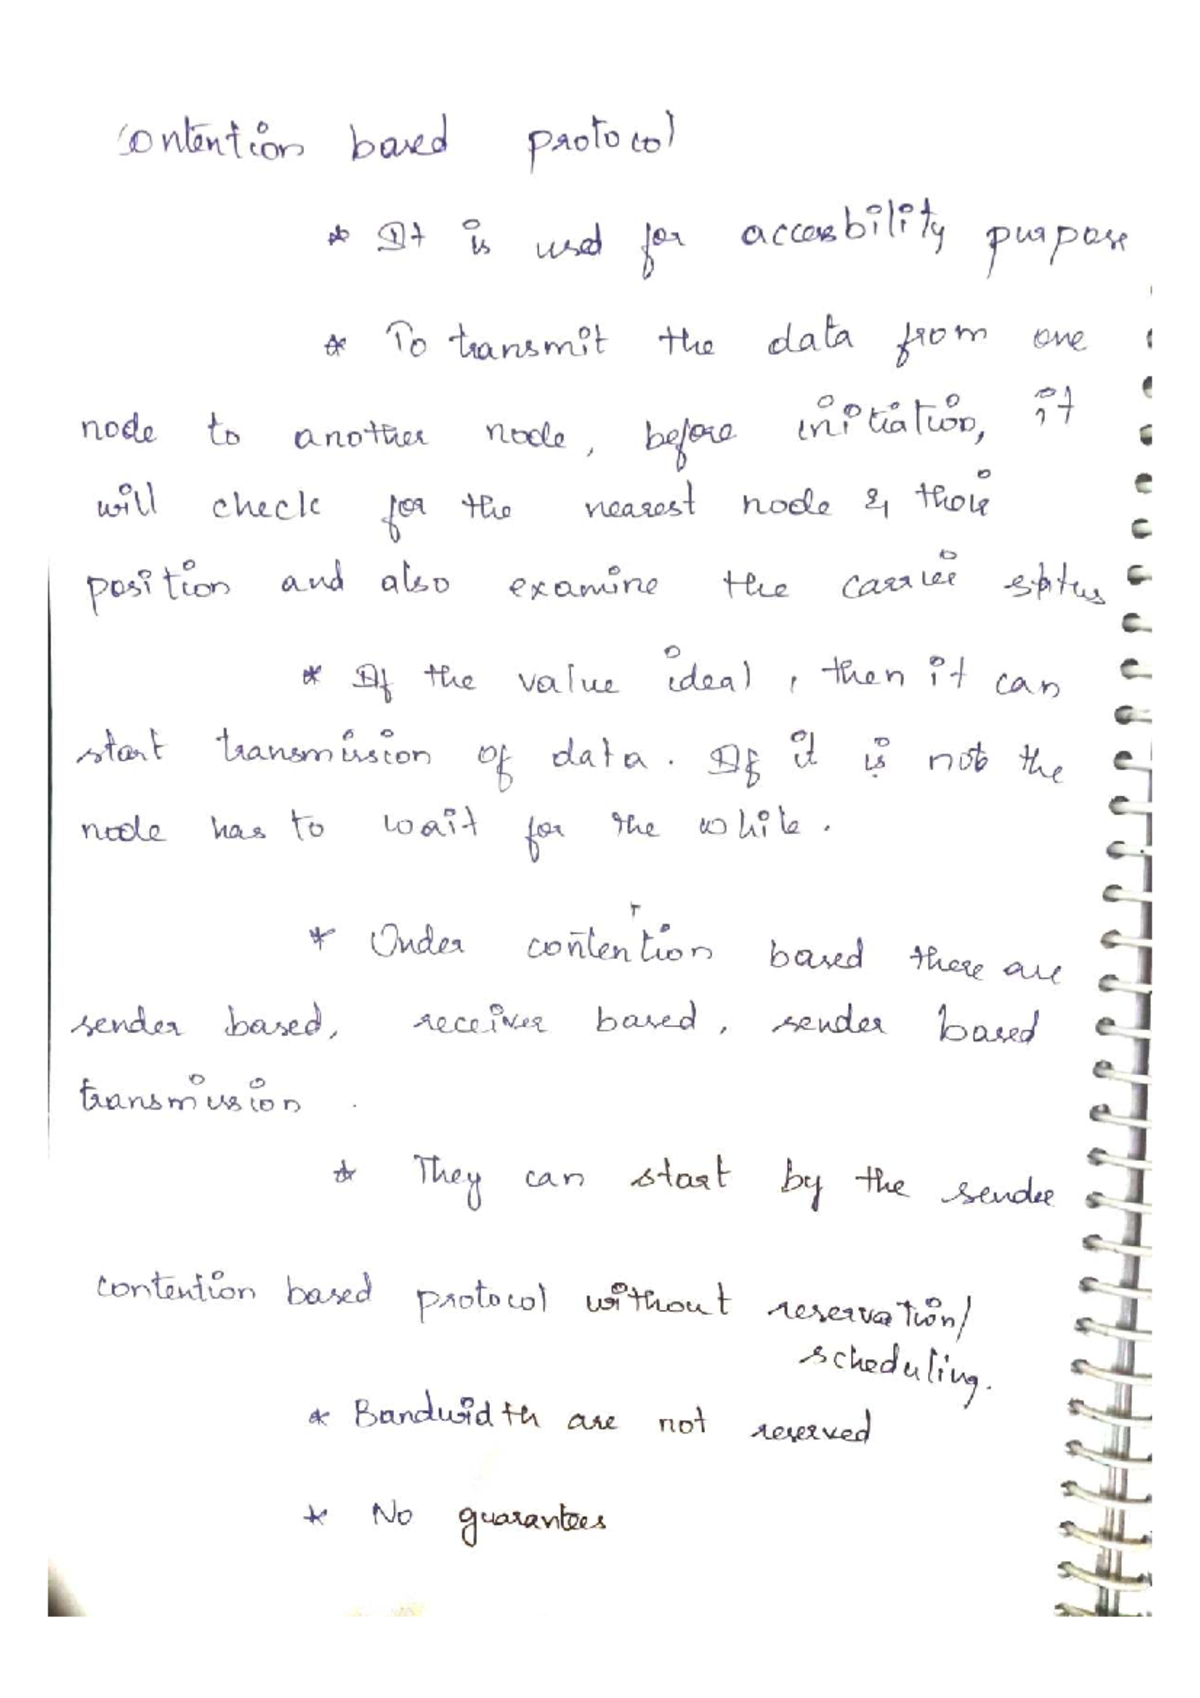 contention based protocol
* It is used for accessbility purpose
* To transmit the data from one
node to another node, before initiation, it
will check for the nearest node & their
position and also examine the carrier status
* If the value ideal, then it can
start transmission of data. If it is not the
node has to wait for the while.
* Under contention based there are
sender based, receiver based, sender based
transmission.
* They can start by the sender
contention based protocol without reservation/
scheduling.
* Bandwidth are not reserved
* No guarantees